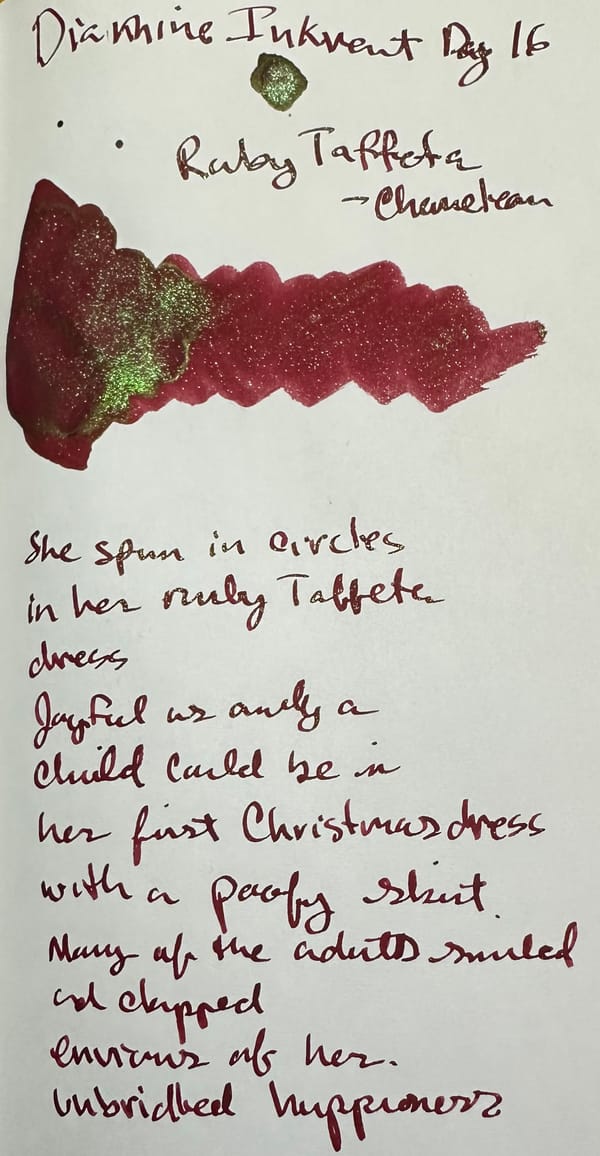 Diamine Inkvent Day 16
Ruby Taffeta
- Chameleon
She spun in circles
in her ruby Taffeta
dress
Joyful as only a
child could be in
her first Christmas dress
with a poofy skirt.
Many of the adults smiled
and clapped
envious of her.
unbridled happiness